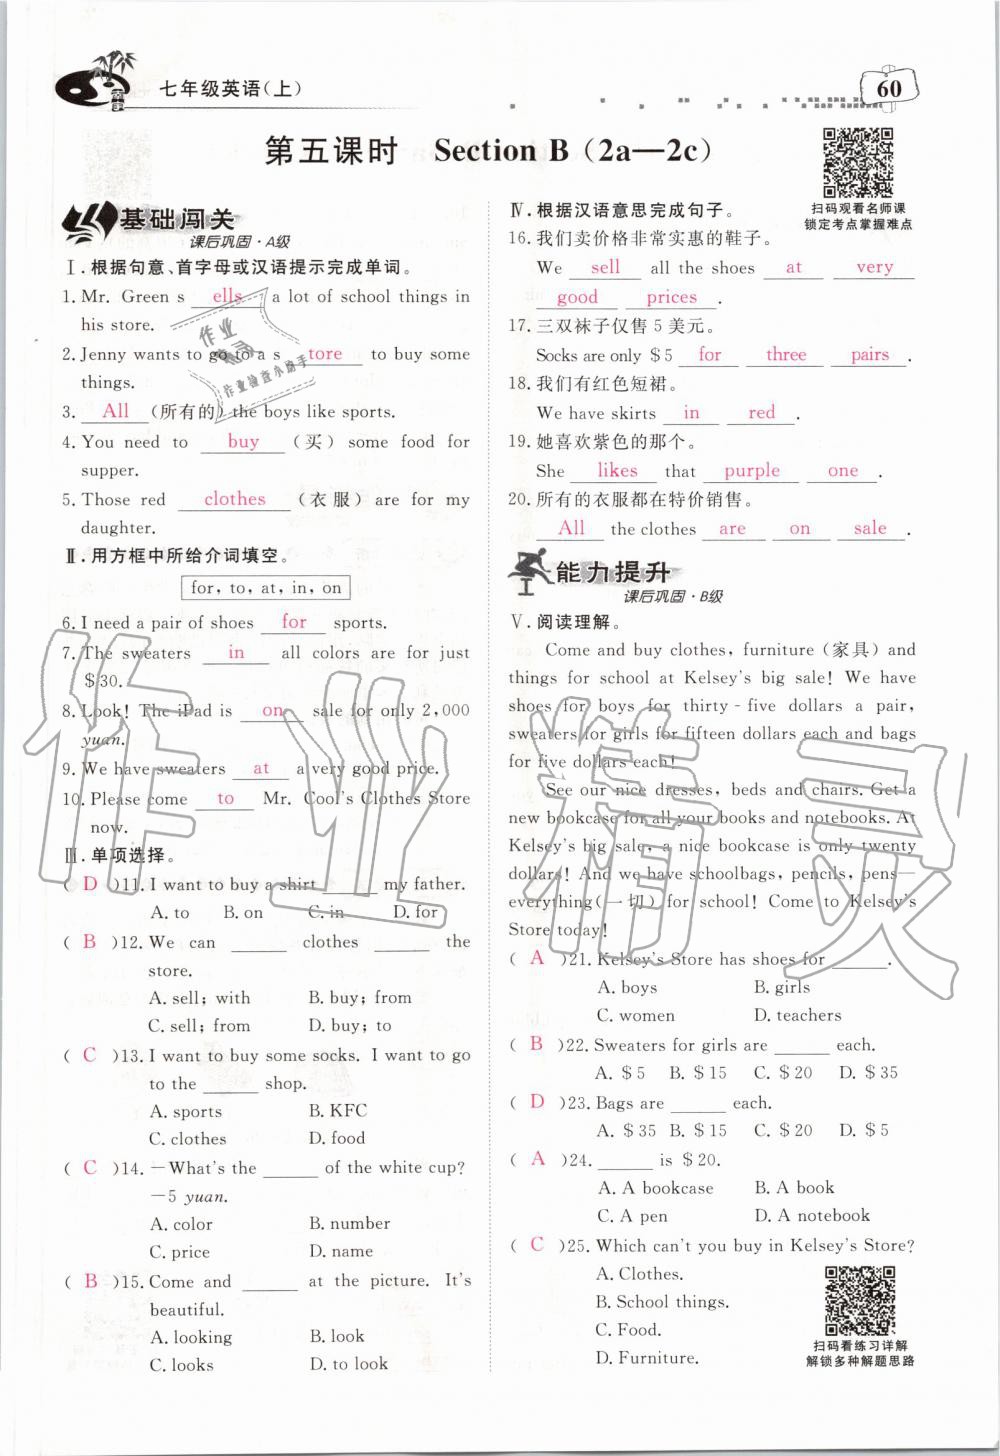 七年级英语(上)
60
第五课时 Section B (2a—2c)
扫码观看名师课
锁定考点掌握难点
基础闯关
课后巩固·A级
Ⅰ.根据句意、首字母或汉语提示完成单词。
1. Mr. Green s ells a lot of school things in
his store.
2. Jenny wants to go to a s tore to buy some
things.
3. All (所有的) the boys like sports.
4. You need to buy (买) some food for
supper.
5. Those red clothes (衣服) are for my
daughter.
Ⅱ.用方框中所给介词填空。
for, to, at, in, on
6. I need a pair of shoes for sports.
7. The sweaters in all colors are for just
$30.
8. Look! The iPad is on sale for only 2,000
yuan.
9. We have sweaters at a very good price.
10. Please come to Mr. Cool's Clothes Store
now.
Ⅲ.单项选择。
( D )11. I want to buy a shirt ______ my father.
A. to B. on C. in D. for
( B )12. We can ______ clothes ______ the
store.
A. sell; with B. buy; from
C. sell; from D. buy; to
( C )13. I want to buy some socks. I want to go
to the ______ shop.
A. sports B. KFC
C. clothes D. food
( C )14. —What's the ______ of the white cup?
—5 yuan.
A. color B. number
C. price D. name
( B )15. Come and ______ at the picture. It's
beautiful.
A. looking B. look
C. looks D. to look
Ⅳ.根据汉语意思完成句子。
16. 我们卖价格非常实惠的鞋子。
We sell all the shoes at very
good prices .
17. 三双袜子仅售 5 美元。
Socks are only $5 for three pairs .
18. 我们有红色短裙。
We have skirts in red .
19. 她喜欢紫色的那个。
She likes that purple one .
20. 所有的衣服都在特价销售。
All the clothes are on sale .
能力提升
课后巩固·B级
Ⅴ.阅读理解。
Come and buy clothes, furniture (家具) and
things for school at Kelsey's big sale! We have
shoes for boys for thirty-five dollars a pair,
sweaters for girls for fifteen dollars each and bags
for five dollars each!
See our nice dresses, beds and chairs. Get a
new bookcase for all your books and notebooks. At
Kelsey's big sale, a nice bookcase is only twenty
dollars! And we have schoolbags, pencils, pens—
everything(一切) for school! Come to Kelsey's
Store today!
( A )21. Kelsey's Store has shoes for ______.
A. boys B. girls
C. women D. teachers
( B )22. Sweaters for girls are ______ each.
A. $5 B. $15 C. $20 D. $35
( D )23. Bags are ______ each.
A. $35 B. $15 C. $20 D. $5
( A )24. ______ is $20.
A. A bookcase B. A book
C. A pen D. A notebook
( C )25. Which can't you buy in Kelsey's Store?
A. Clothes.
B. School things.
C. Food.
D. Furniture.
扫码看练习详解
解锁多种解题思路
作业精灵
作业
作业检查小助手